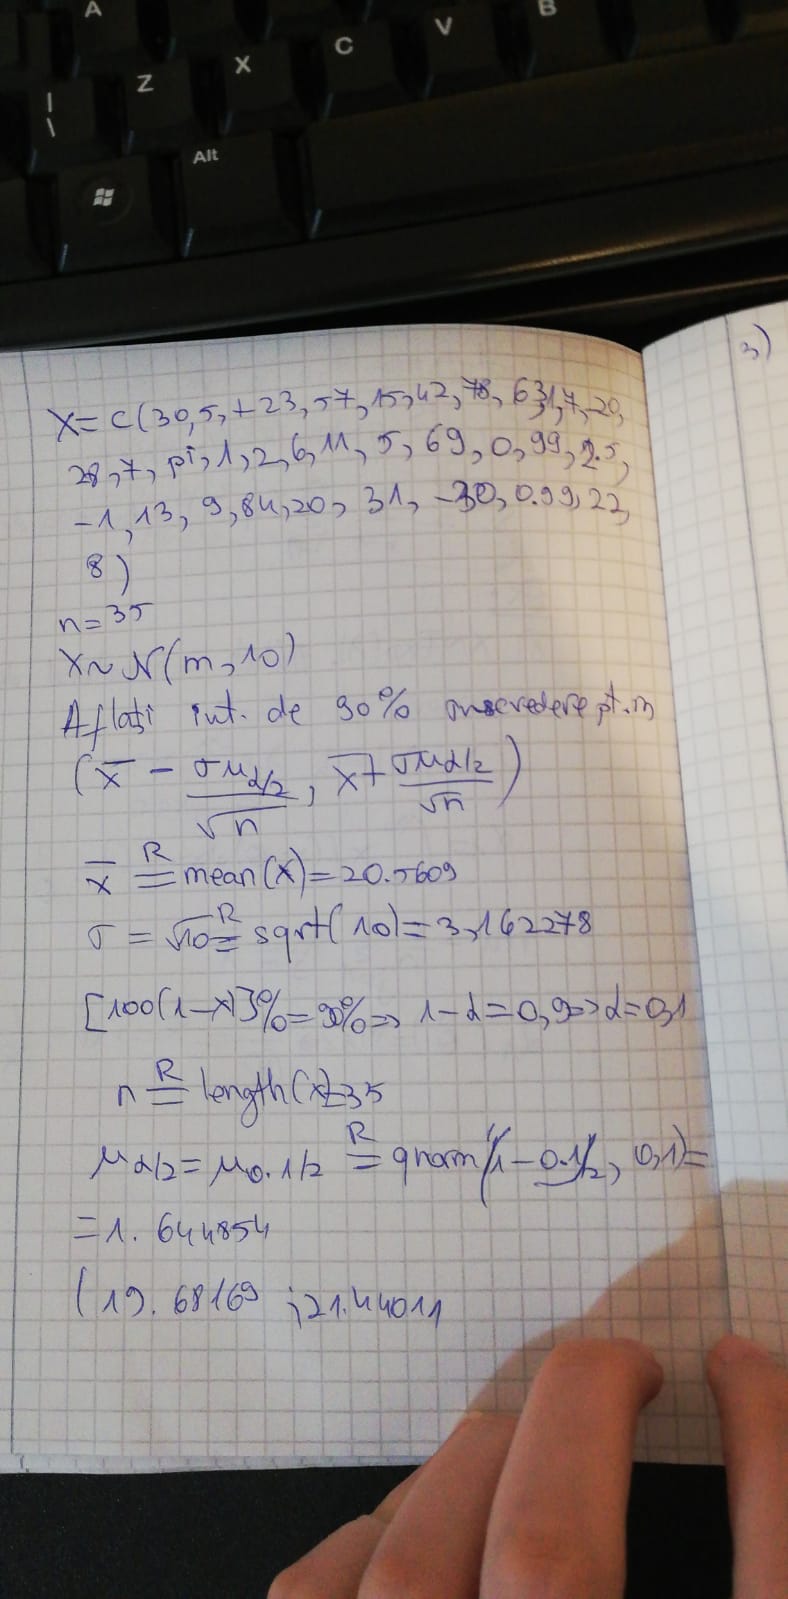 A
B
V
C
X
Z
|
\
Alt
3)
X=C(30,5,+23,57,15,42,78,631,7,20,
28,7, pi,1,2,6,11,5,69,0,99,2.5,
-1,13,9,84,20,31,-30,0.99,22,
8)
n=35
X~N(m,10)
Aflați int. de 90% încredere pt. m
(x̄ - σμα/2/√n, x̄+σμα/2/√n)
x̄ =R mean(x)=20.5609
σ=√10 =R sqrt(10)=3,162278
[100(1-α)]%=90%=>1-α=0,9=>α=0,1
n =R length(x)=35
μα/2=μ0.1/2 =R qnorm(1-0.1/2, 0,1)=
=1.644854
(19.68169 ;21.44011